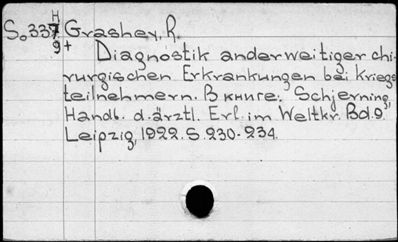 H
S₀337 Grashey, R.
9+ Diagnostik anderweitiger chi-
rurgischen Erkrankungen bei Kriegs
teilnehmern. В книге: Schjerning,
Handb. d. ärztl. Erf. im Weltkr. Bd. 9.
Leipzig, 1922. S. 230-234.